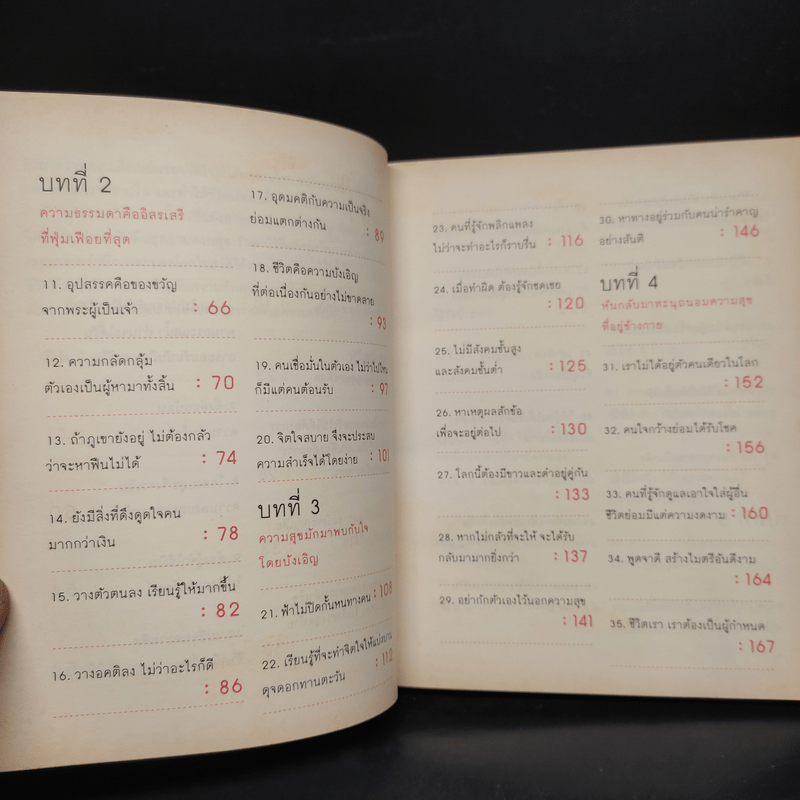 บทที่ 2
ความธรรมดาคืออิสรเสรี
ที่ฟุ่มเฟือยที่สุด
11. อุปสรรคคือของขวัญ
จากพระผู้เป็นเจ้า : 66
12. ความกลัดกลุ้ม
ตัวเองเป็นผู้หามาทั้งสิ้น : 70
13. ถ้าภูเขายังอยู่ ไม่ต้องกลัว
ว่าจะหาฟืนไม่ได้ : 74
14. ยังมีสิ่งที่ดึงดูดใจคน
มากกว่าเงิน : 78
15. วางตัวตนลง เรียนรู้ให้มากขึ้น
: 82
16. วางอคติลง ไม่ว่าอะไรก็ดี
: 86
17. อุดมคติกับความเป็นจริง
ย่อมแตกต่างกัน : 89
18. ชีวิตคือความบังเอิญ
ที่ต่อเนื่องกันอย่างไม่ขาดสาย
: 93
19. คนเชื่อมั่นในตัวเอง ไม่ว่าไปไหน
ก็มีแต่คนต้อนรับ : 97
20. จิตใจสบาย จึงจะประสบ
ความสำเร็จได้โดยง่าย : 101
บทที่ 3
ความสุขมักมาพบกับใจ
โดยบังเอิญ
21. ฟ้าไม่ปิดกั้นหนทางคน : 108
22. เรียนรู้ที่จะทำจิตใจให้เบ่งบาน
ดุจดอกทานตะวัน : 112
23. คนที่รู้จักพลิกแพลง
ไม่ว่าจะทำอะไรก็ราบรื่น : 116
24. เมื่อทำผิด ต้องรู้จักชดเชย
: 120
25. ไม่มีสังคมชั้นสูง
และสังคมชั้นต่ำ : 125
26. หาเหตุผลสักข้อ
เพื่อจะอยู่ต่อไป : 130
27. โลกนี้ต้องมีขาวและดำอยู่คู่กัน
: 133
28. หากไม่กลัวที่จะให้ จะได้รับ
กลับมามากยิ่งกว่า : 137
29. อย่ากักตัวเองไว้นอกความสุข
: 141
30. หาทางอยู่ร่วมกับคนน่ารำคาญ
อย่างสันติ : 146
บทที่ 4
หันกลับมาทะนุถนอมความสุข
ที่อยู่ข้างกาย
31. เราไม่ได้อยู่ตัวคนเดียวในโลก
: 152
32. คนใจกว้างย่อมได้รับโชค
: 156
33. คนที่รู้จักดูแลเอาใจใส่ผู้อื่น
ชีวิตย่อมมีแต่ความงดงาม : 160
34. พูดจาดี สร้างไมตรีอันดีงาม
: 164
35. ชีวิตเรา เราต้องเป็นผู้กำหนด
: 167